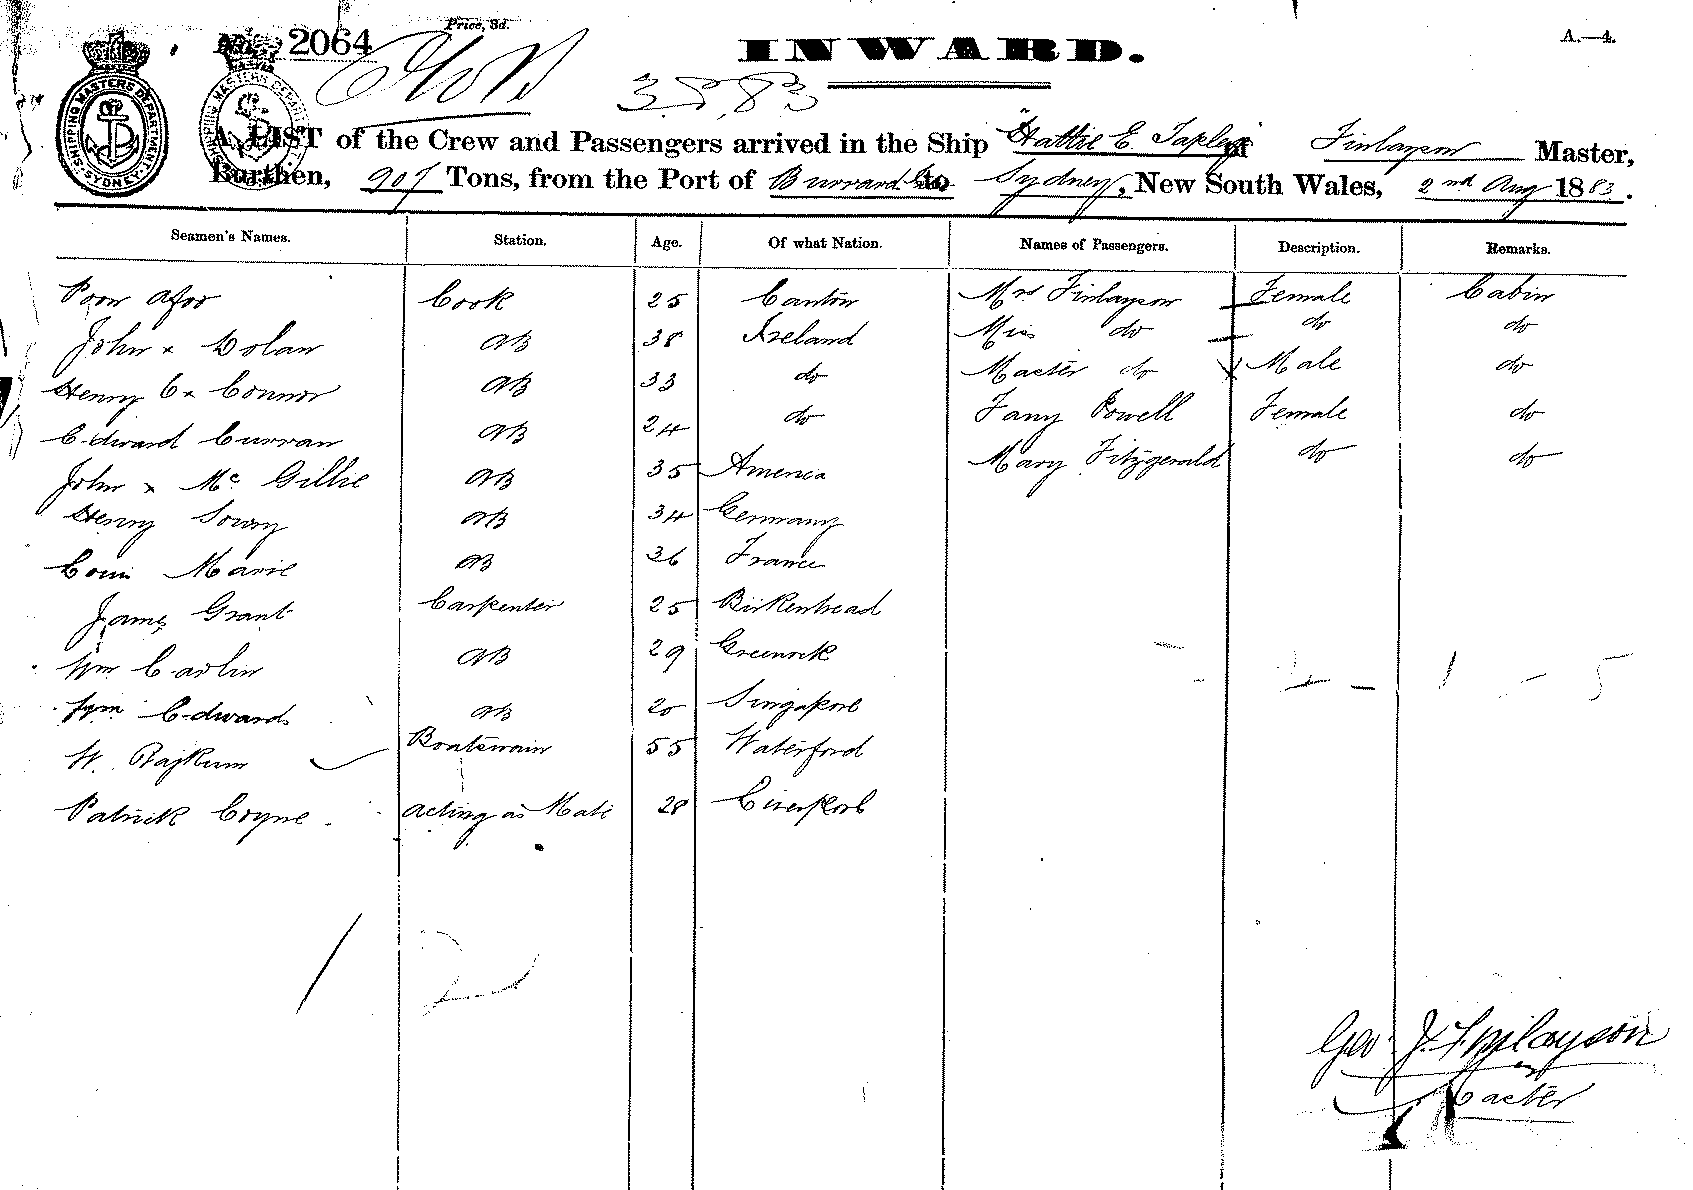 No. 2064
Price, 3d.
INWARD.
A.—4.
3.8.83
SHIPPING MASTERS DEPARTMENT SYDNEY
A LIST of the Crew and Passengers arrived in the Ship "Hattie E. Tapley" of Finlayson Master,
Burthen, 907 Tons, from the Port of Burrard to Sydney, New South Wales, 2nd Aug 1883.
Seamen's Names. Station. Age. Of what Nation. Names of Passengers. Description. Remarks.
Poon Afoo Cook 25 Canton Mrs Finlayson Female Cabin
John x Dolan AB 38 Ireland Miss do do do
Henry C x Connor AB 33 do Master do Male do
Edward Curran AB 24 do Fany Powell Female do
John x Mc Gillie AB 35 America Mary Fitzgerald do do
Henry AB 34 Germany
Marie AB 26 France
James Grant Carpenter 25 Birkenhead
Wm Carlin AB 29 Greenock
Edwards AB 20 Singapore
W. Boatswain 55 Waterford
Patrick Coyne acting as Mate 28 Liverpool
4 - 1 - 5
Geo. J. Finlayson
Master